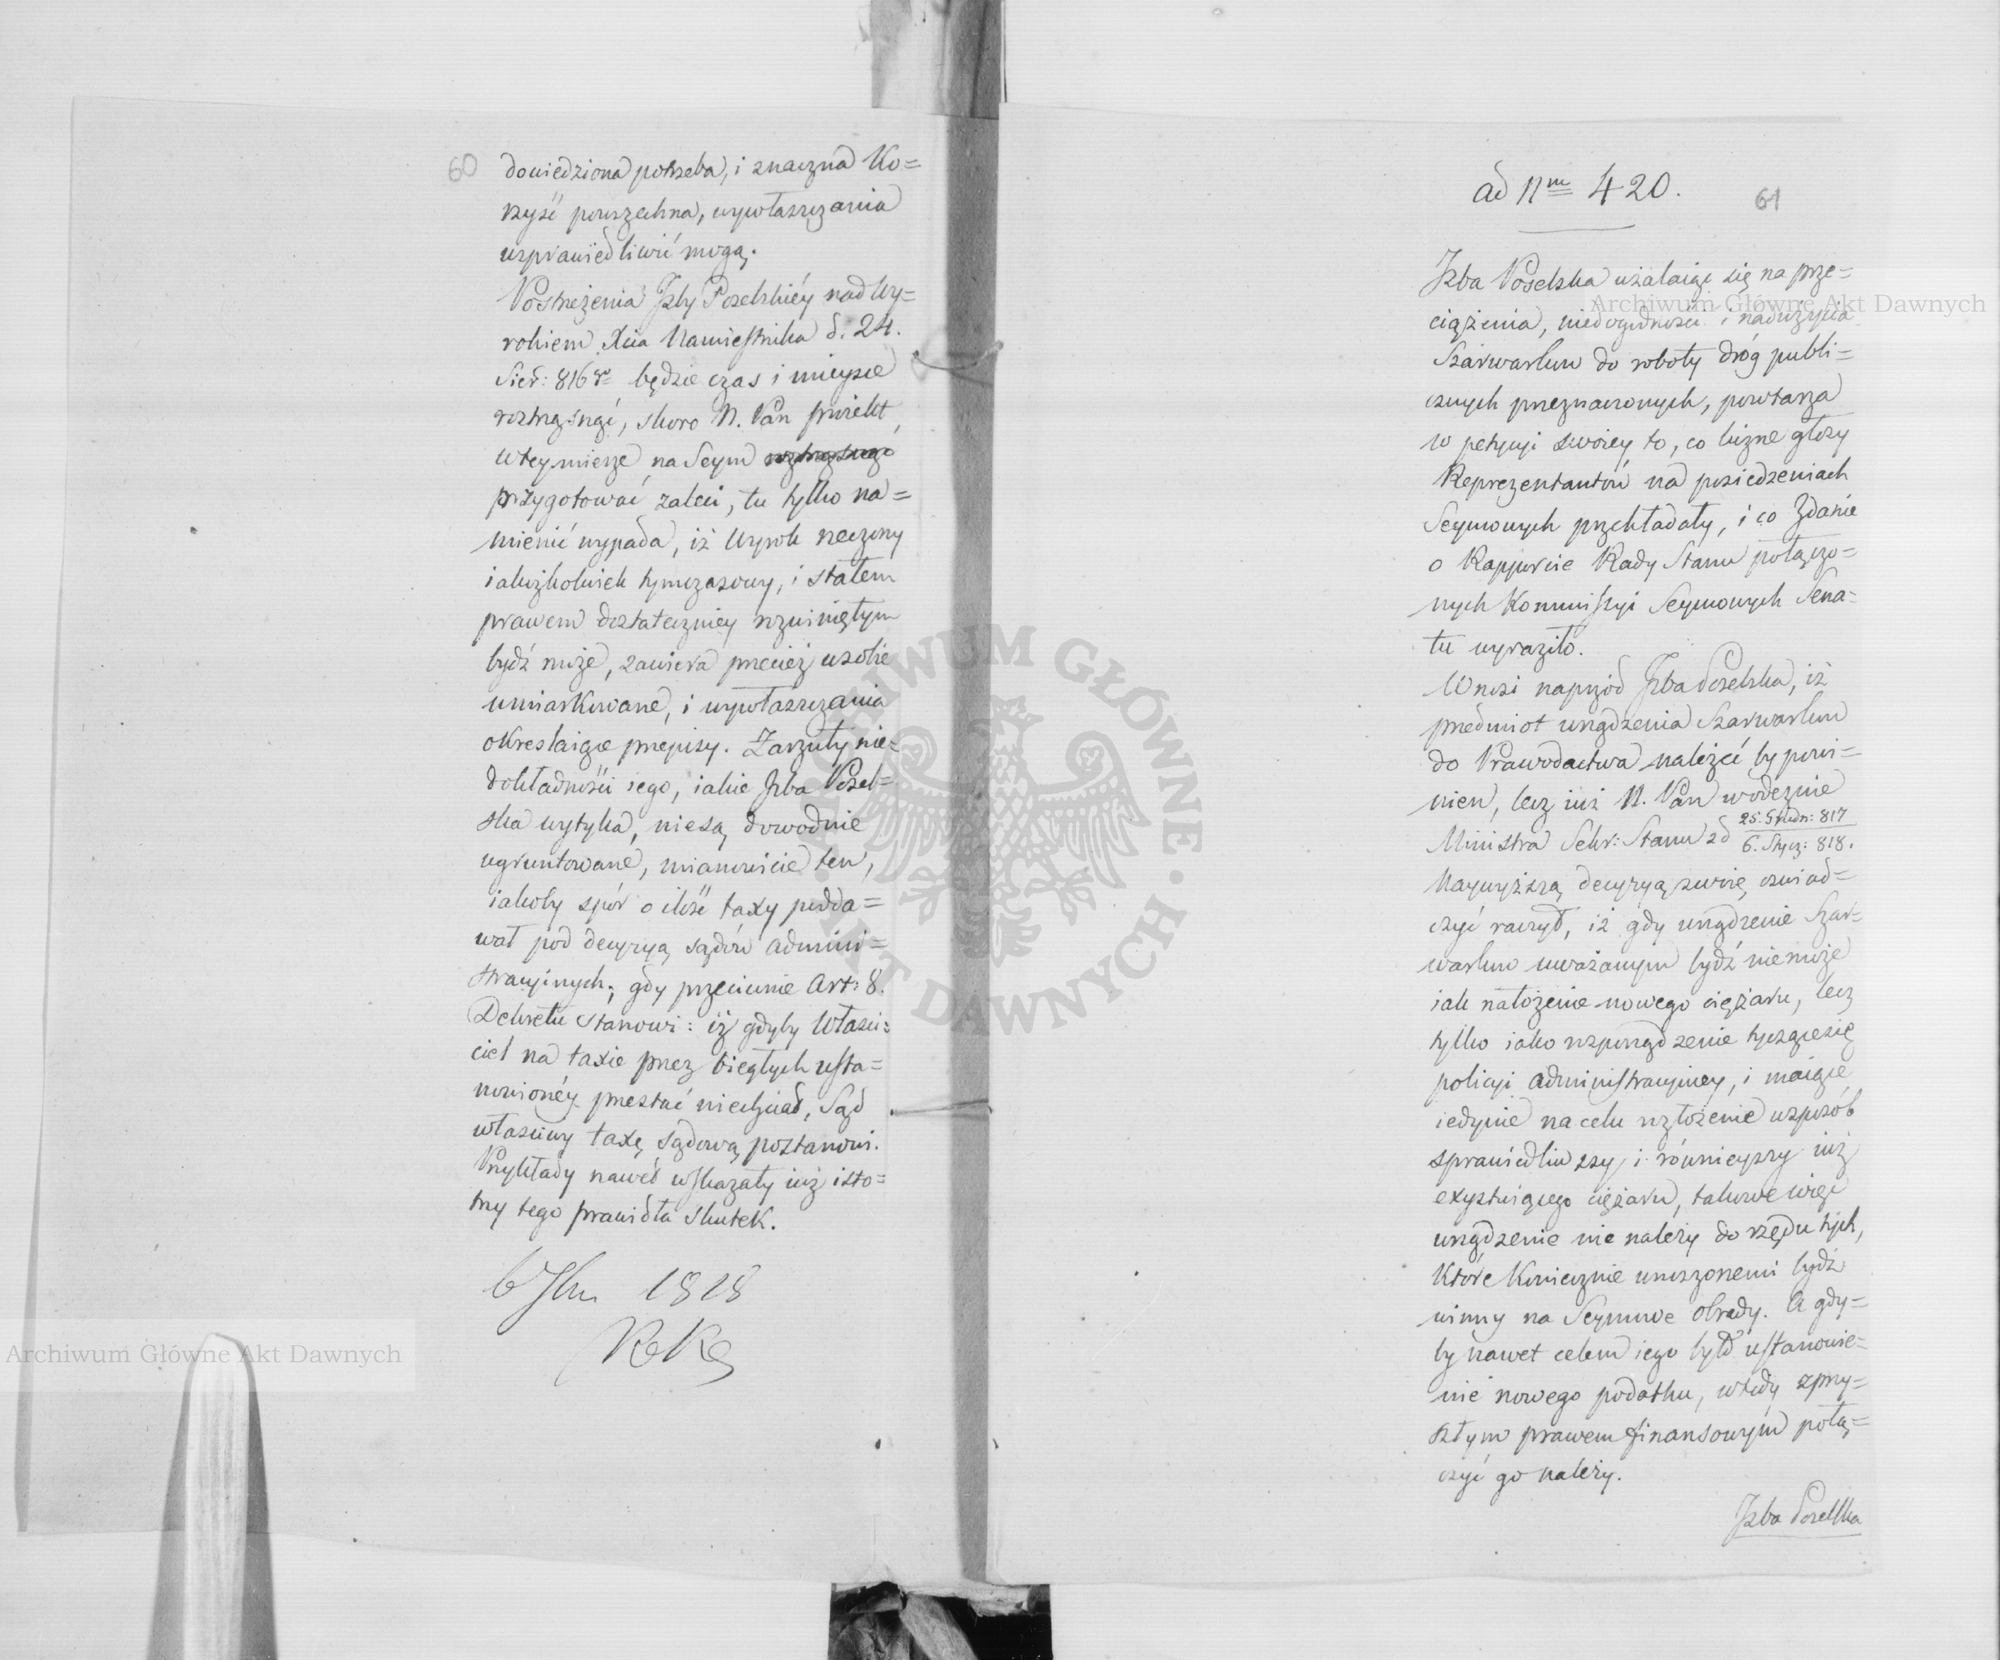 60
dowiedziona potrzeba, i znaczna Ko=
rzyść powszechna, wywłaszczania
usprawiedliwić mogą.
Postrzeżenia Izby Poselskiéy nad Wy=
rokiem Xcia Namiestnika d. 24.
Sier: 816 r będzie czas i mieysce
roztrząsnąć, skoro N. Pan proiekt
w tey mierze na Seym roztrząsnąć
przygotować zaleci, tu tylko na=
mienić wypada, iż Wyrok rzeczony
iakożkolwiek tymczasowy, i stałem
prawem dostateczniey rozwiniętym
bydź może, zawiera przecież w sobie
umiarkowane, i wywłaszczania
okreslaiące przepisy. Zarzuty nie=
dokładności iego, iakie Izba Posel=
ska wytyka, niesą dowodnie
ugruntowane, mianowicie ten,
iakoby spór o ilość taxy podda=
wał pod decyzyą sądów admini=
stracyinych; gdy przeciwnie Art: 8.
Dekretu stanowi: iż gdyby Właści=
ciel na taxie przez biegłych usta=
nowionéy przestać niechciał, Sąd
właściwy taxę sądową postanowi.
Przykłady nawet wskazały iuż isto=
tny tego prawidła skutek.
1818
ad Nm 420.
61
Izba Poselska użalaiąc się na prze=
ciążenia, niedogodności i nadużycia
Szarwarku do roboty dróg publi=
cznych przeznaczonych, powtarza
w petycyi swoiey to, co liczne głosy
Reprezentantów na posiedzeniach
Seymowych przekładały, i co Zdanie
o Rapporcie Rady Stanu połączo=
nych Kommissyi Seymowych Sena=
tu wyraziło.
Wnosi naprzód Izba Poselska, iż
przedmiot urządzenia Szarwarku
do Prawodactwa należeć by powi=
nien, lecz iuż N. Pan w odezwie
Ministra Sekr: Stanu z d 25. Grudn: 817
6. Stycz: 818.
Naywyższą decyzyą swoię oświad=
czyć raczył, iż gdy urządzenie Szar=
warku uważanym bydź niemoże
iak nałożenie nowego ciężaru, lecz
tylko iako rozporządzenie tyczącesię
policyi administracyiney, i maiące
iedynie na celu rozłożenie w sposób
sprawiedliwszy i równieyszy iuż
exystuiącego ciężaru, takowe więc
urządzenie nie należy do rzędu tych,
które koniecznie wnoszonemi bydź
winny na Seymowe obrady. A gdy=
by nawet celem iego był ustanowie=
nie nowego podatku, wtedy z przy=
szłym prawem finansowym połą=
czyć go należy.
Izba Poselska
Archiwum Główne Akt Dawnych
Archiwum Główne Akt Dawnych
ARCHIWUM GŁÓWNE · AKT DAWNYCH ·